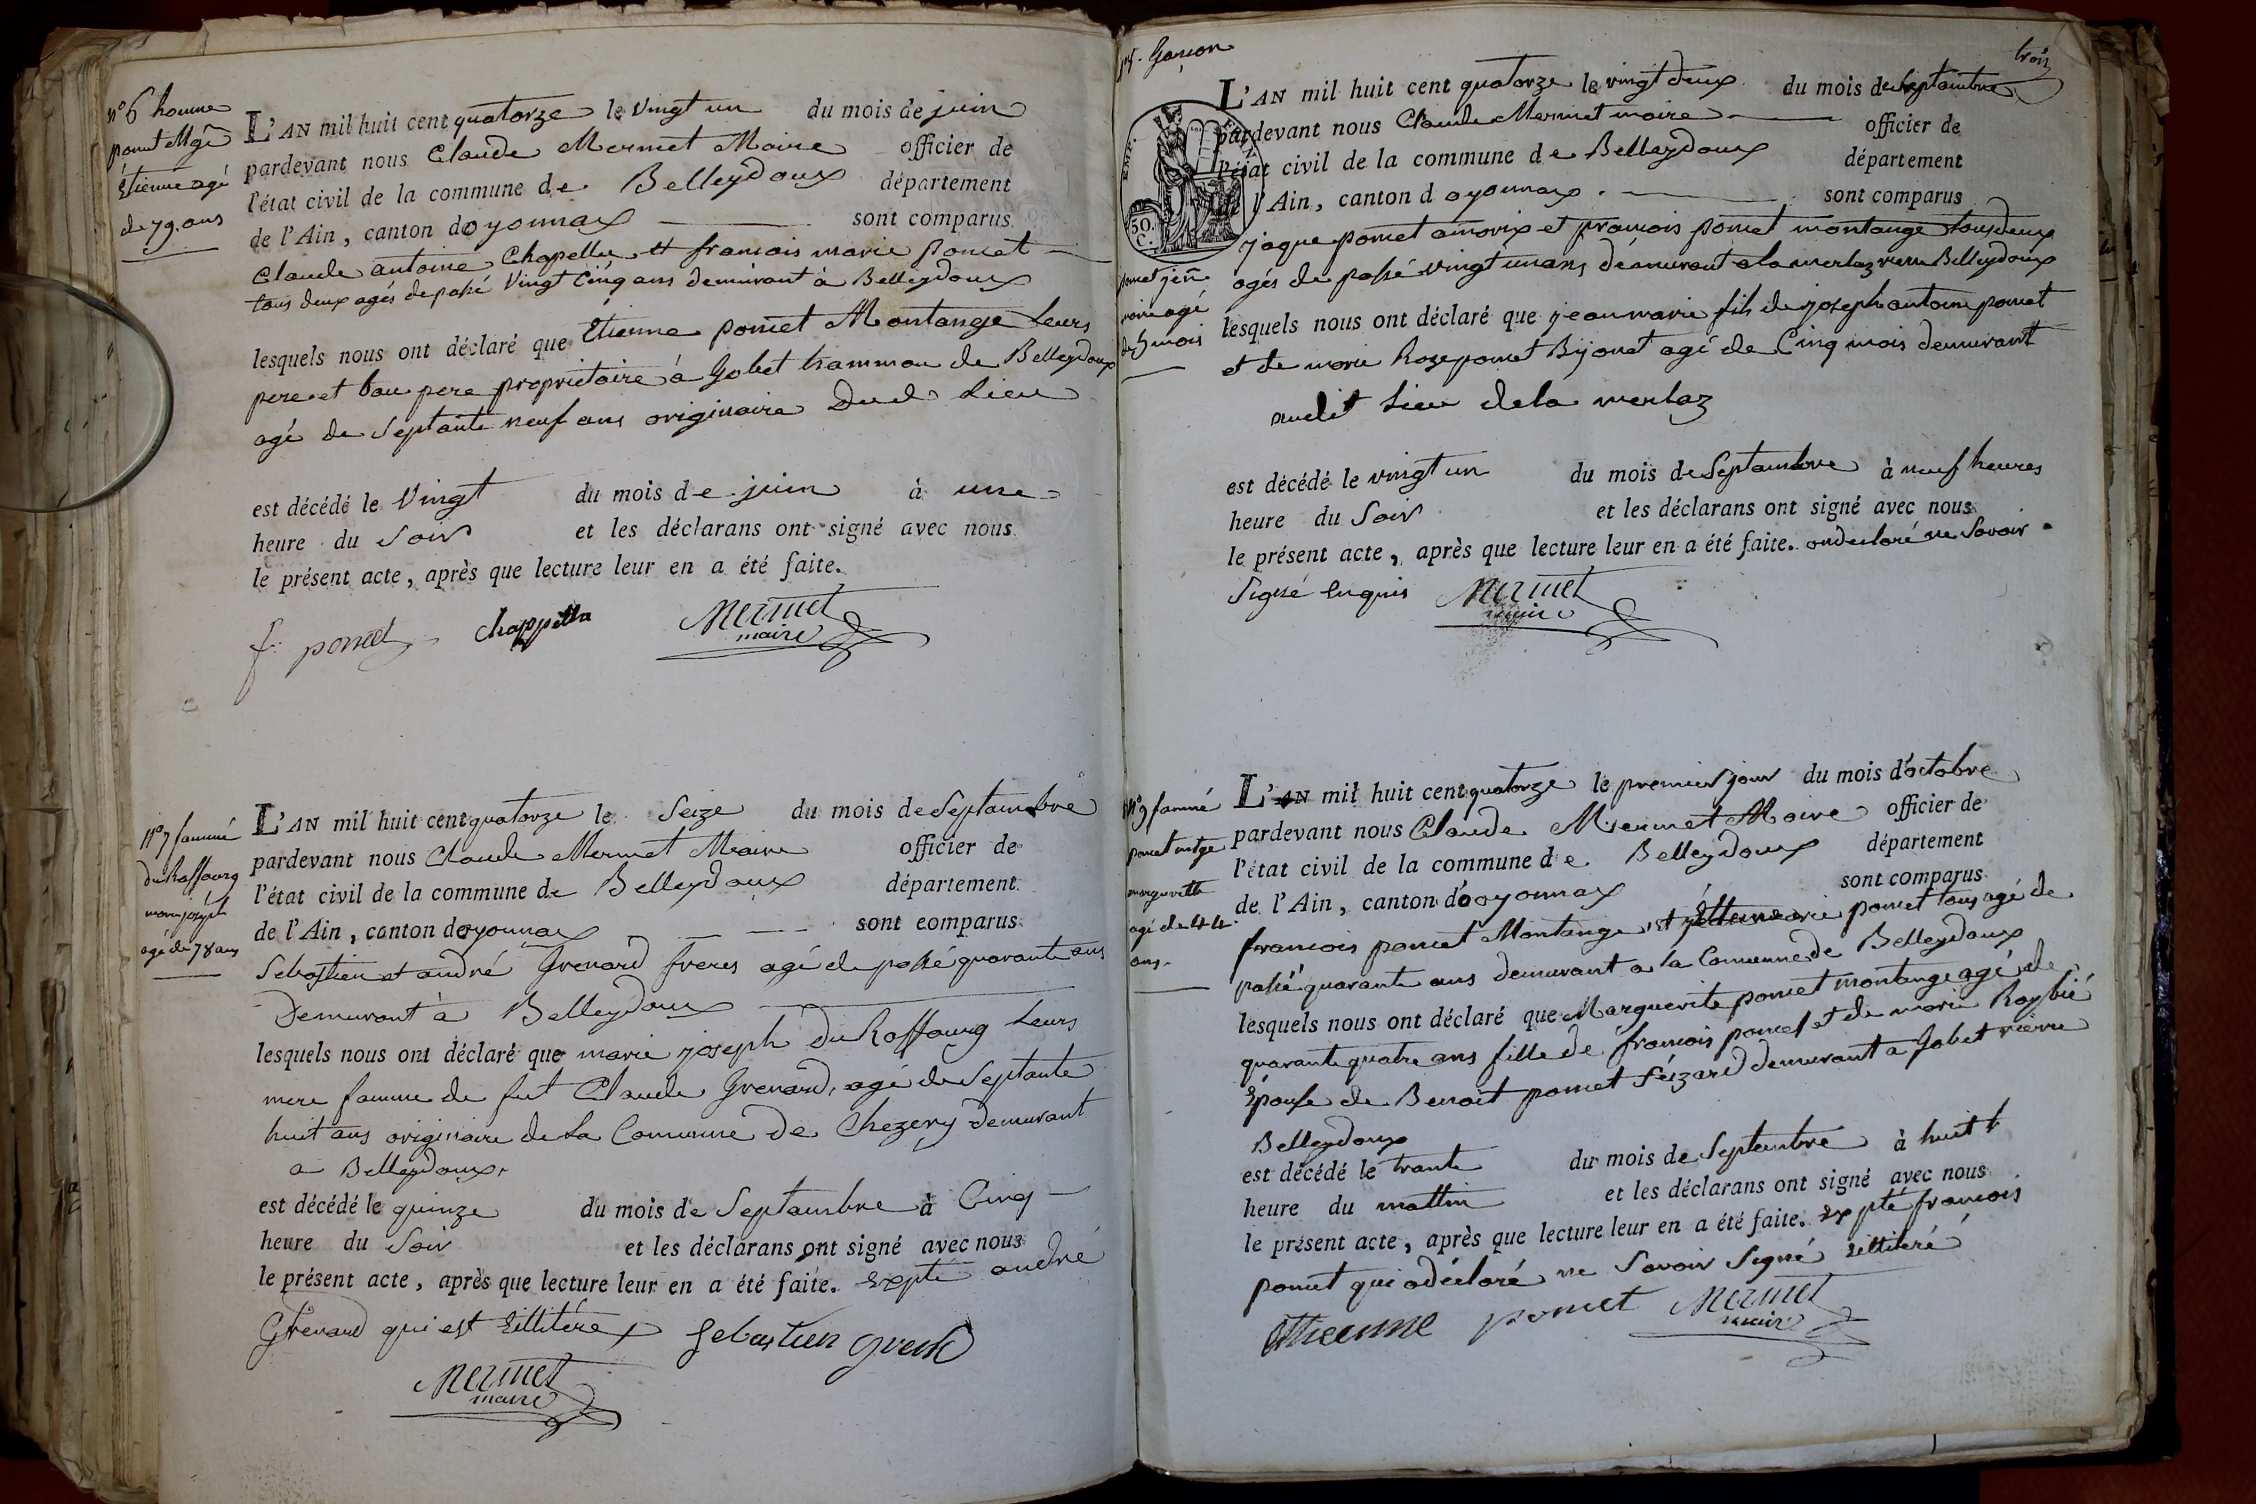 n° 6 homme
poncet Mge
Étienne agé
de 79. ans
L'AN mil huit cent quatorze le vingt un du mois de juin
pardevant nous Claude Mermet Maire officier de
l'état civil de la commune de Belleydoux département
de l'Ain, canton doyonnax sont comparus
Claude antoine Chapellu et francois marie poncet
tous deux agés de passé vingt cinq ans demeurant à Belleydoux
lesquels nous ont déclaré que Etienne poncet Montange leurs
pere et bau pere proprietaire à Gobet hammau de Belleydoux
agé de septante neuf ans originaire Dud. Lieu
est décédé le vingt du mois de juin à une
heure du soir et les déclarans ont signé avec nous
le présent acte, après que lecture leur en a été faite.
f. poncet chappella Mermet
maire
N° 7 famme
du Raffourg
marie joseph
agé de 78 ans
L'AN mil huit cent quatorze le Seize du mois de Septambre
pardevant nous Claude Mermet Maire officier de
l'état civil de la commune de Belleydoux département
de l'Ain, canton doyonnax sont comparus
Sebastien et andré Grenard freres agé de passé quarante ans
Demurant à Belleydoux
lesquels nous ont déclaré que marie joseph du Raffourg Leurs
mere famme de fut Claude Grenard, agé de Septante
huit ans originaire de La Commune de Chezery demurant
a Belleydoux,
est décédé le quinze du mois de Septambre à Cinq
heure du Soir et les déclarans ont signé avec nous
le présent acte, après que lecture leur en a été faite. Expté andré
Grenard qui est Eillitére Sebastien
Mermet
maire
trois
Garçon
poncet jean
marie agé
de 5 mois
EMP.
50.
C.
L'AN mil huit cent quatorze le vingt deux du mois de Septambre
pardevant nous Claude Mermet maire officier de
l'état civil de la commune de Belleydoux département
de l'Ain, canton d oyonnax. sont comparus
jaque poncet amorix et francois poncet montange tous deux
agés de passé vingt un ans demeurant a la merlaz riere Belleydoux
lesquels nous ont déclaré que jean marie fils de joseph antoine poncet
et de marie Roze poncet Bijouet agé de Cinq mois demurant
audit Lieu de la merlaz
est décédé le vingt un du mois de Septambre à neuf heures
heure du Soir et les déclarans ont signé avec nous
le présent acte, après que lecture leur en a été faite. ondeclaré ne Savoir
Signé enquis Mermet
maire
N° 9 famme
poncet mtge
marguerette
agé de 44
ans.
L'AN mil huit cent quatorze le premier jour du mois d'octobre
pardevant nous Claude Mermet Maire officier de
l'état civil de la commune de Belleydoux département
de l'Ain, canton d'oyonnax sont comparus
francois poncet Montange et marie poncet tous agé de
passé quarante ans demurant a la Commune de Belleydoux
lesquels nous ont déclaré que Marguerite poncet montange agé de
quarante quatre ans fille de francois poncet et de marie Roybié
Épouse de Benoit poncet Seizard demurant a Gobet rierre
Belleydoux
est décédé le trante du mois de Septembre à huit h
heure du mattin et les déclarans ont signé avec nous
le présent acte, après que lecture leur en a été faite. Expté francois
poncet qui adéclaré ne Savoir Signé Eillitéré
Ettienne poncet Mermet
maire